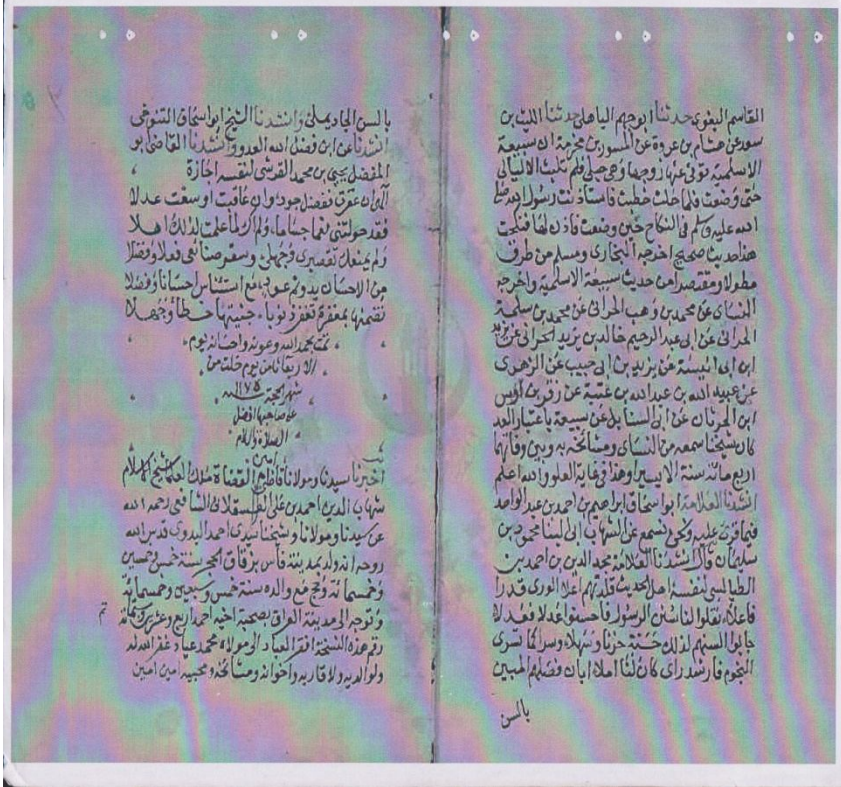 القاسم البغوى حدثنا ابوجهم الباهلى حدثنا الليث بن
سعد عن هشام بن عروة عن المسور بن مخرمة ان سبيعة
الاسلمية توفى عنها زوجها وهى حبلى فلم تلبث الا ليالى
حتى وضعت فلما حلت خطبت فاستاذنت رسول الله صلى
الله عليه وسلم فى النكاح حين وضعت فاذن لها فنكحت
هذا حديث صحيح اخرجه البخارى ومسلم من طرق
مطولا ومختصرا من حديث سبيعة الاسلمية واخرجه
النساى عن محمد بن وهب الحرانى عن محمد بن سلمة
الحرانى عن ابى عبد الرحيم خالد بن يزيد الحرانى عن يزيد
ابن ابى انيسة عن يزيد بن ابى حبيب عن الزهرى
عن عبيد الله بن عبد الله بن عتبة عن زفر بن اوس
ابن الحدثان عن ابى السنابل عن سبيعة باعتبار العدد
كان شيخنا سمعه من النساى وصافحه به وبين وفاتهما
اربع مائة سنة الا يسيرا وهذا فى غاية العلو والله اعلم
انشدنا العلامة ابو اسحاق ابراهيم بن احمد بن عبد الواحد
فيما قرئ عليه وانا اسمع عن الشهاب ابى الثنا محمود بن
سلمان قال انشدنا العلامة مجد الدين بن احمد بن
لنفسه اهل الحديث هم اعلا الورى قدرا
نقلوا الناس سنن الرسول فاحسنوا عدلا فعدلا
جابوا لذلك حزنا وسهلا وسرا كما تسرى
النجوم راى كان املا ابان فضلهم المبين
بالسن
وانشدنا الشيخ ابو اسحاق التنوخى
انشدنا عن ابن فضل الله العدوى وانشدنا القاضى ابو
المفضل يحيى بن محمد القرشى لنفسه اجازة
الهى ان عفوت ففضل جود وان عاقبت اوسعت عدلا
فقد خولتنى نعما جساما ولم اك لما علمت لذلك اهلا
ولم يمنعك تقصيرى وجهلى وفضلا
من الاحسان يدوم مع احسانا وفضلا
بمغفرة ذنوبا جنيتها خطأ وجهلا
تمت بحمد الله وعونه واحسانه يوم
الاربعا ثامن يوم خلت من
شهر الحجة سنة ١١٧٥
على صاحبها افضل
الصلاة والسلام
امين
اخبرنا سيدنا ومولانا قاضى القضاة ملك العلما شيخ الاسلام
شهاب الدين احمد بن على العسقلانى الشافعى رحمه الله
عن سيدنا ومولانا وشيخنا سيدى احمد البدوى قدس الله
روحه انه ولد بمدينة فاس بزقاق الحجر سنة خمس وخمسين
وخمسمائة وحج مع والده سنة خمس وسبعين وخمسمائة
وتوجه الى مدينة العراق بصحبة اخيه احمد اربع وعشرين وستمائة تم
رقم هذه النسخة افقر العباد الى مولاه محمد عياد غفر الله له
ولوالديه ولاقاربه واخوانه ومشائخه ومحبيه امين امين